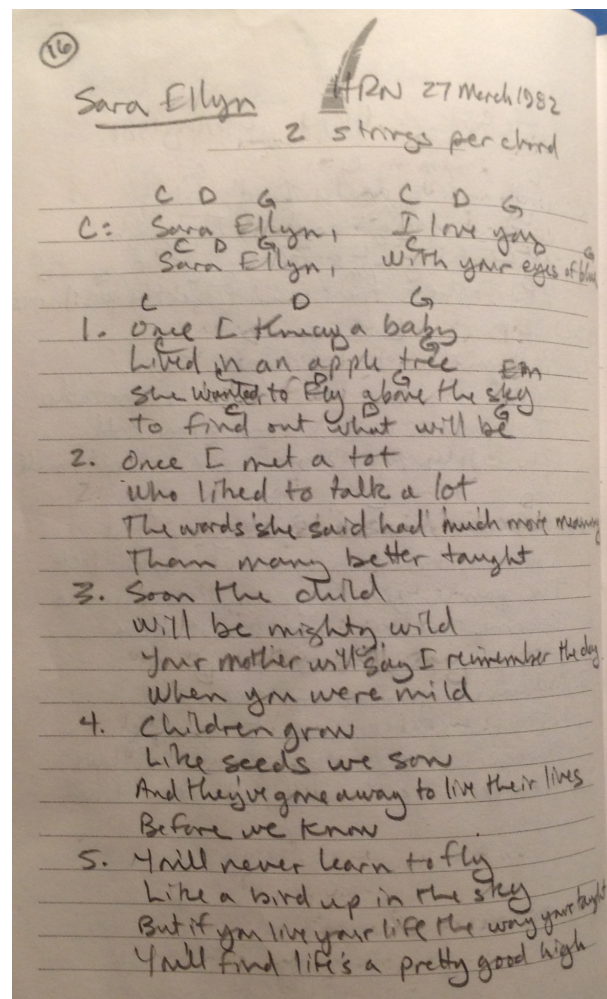 16
Sara Ellyn
HRN 27 March 1982
2 strings per chord
C D G C D G
C: Sara Ellyn, I love you
C D G C D G
Sara Ellyn, with your eyes of blue
C D G
1. Once I knew a baby
C D G
Lived in an apple tree
C D G Em
She wanted to Fly above the sky
C D G
to find out what will be
2. Once I met a tot
who liked to talk a lot
The words she said had much more meaning
Than many better taught
3. Soon the child
will be mighty wild
Your mother will say I remember the day
When you were mild
4. Children grow
Like seeds we sow
And they've gone away to live their lives
Before we know
5. You'll never learn to fly
Like a bird up in the sky
But if you live your life the way your taught
You'll find life's a pretty good high